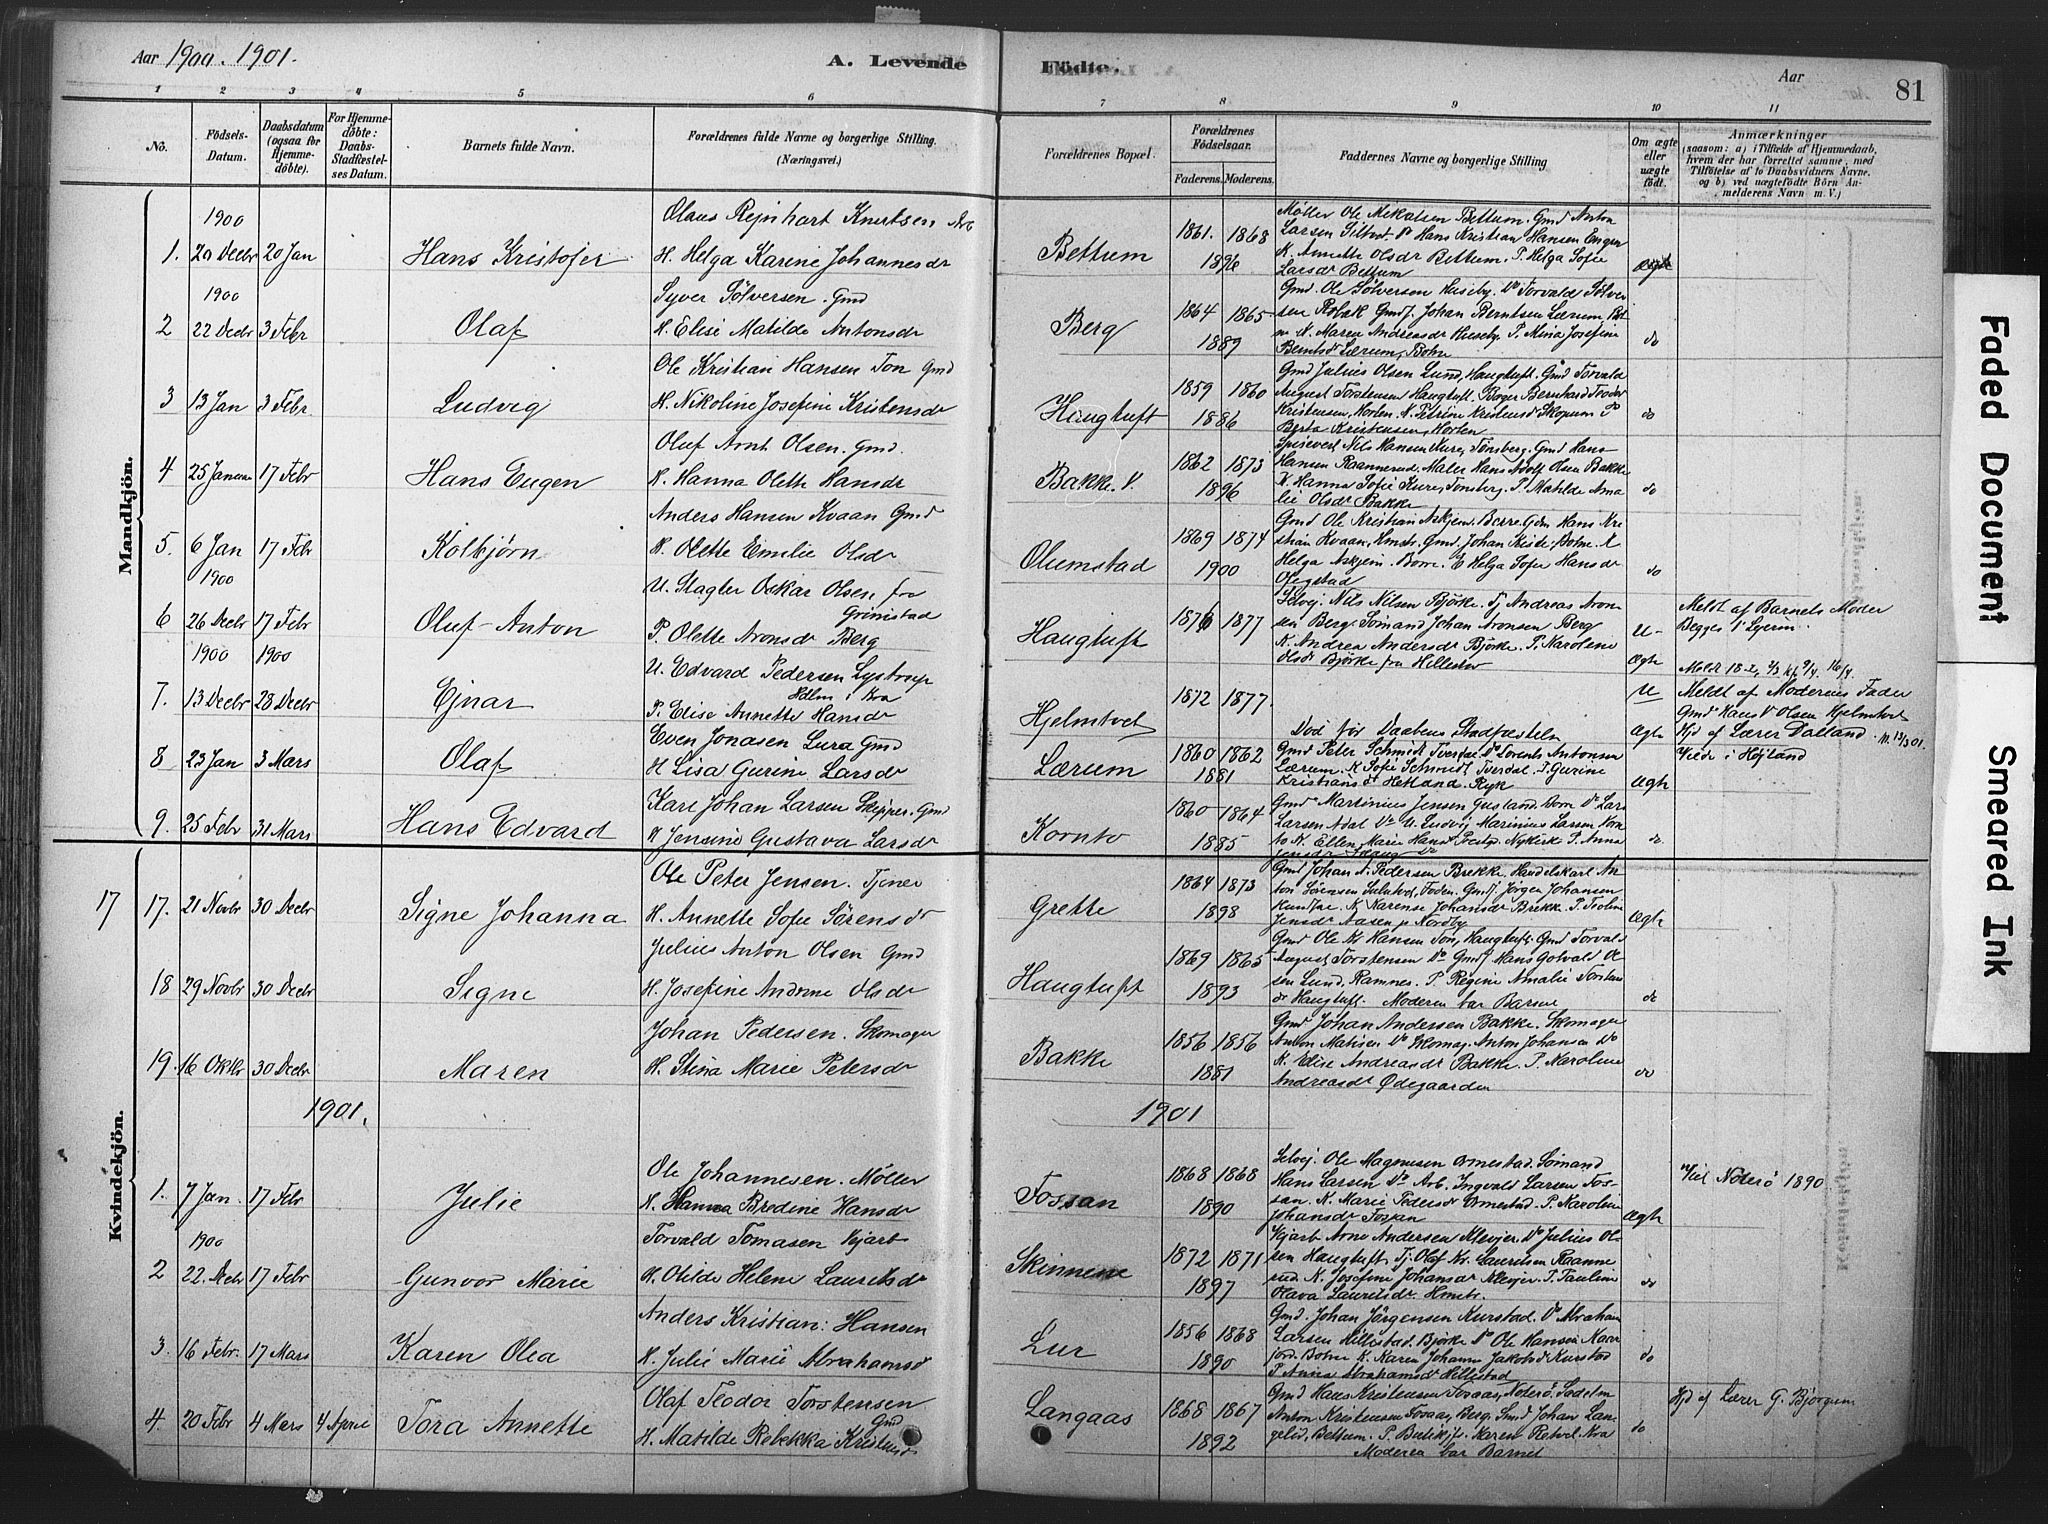 Aar 1900. 1901.
A. Levende Födte.
Aar
81
1 2 3 4 5 6 7 8 9 10 11
No.
Födsels-Datum.
Daabsdatum (ogsaa for Hjemme-döbte).
For Hjemme-döbte: Daabs-Stadfæstel-ses Datum.
Barnets fulde Navn.
Forældrenes fulde Navne og borgerlige Stilling.
(Næringsvei.)
Forældrenes Bopæl.
Forældrenes Födselsaar.
Faderens. Moderens.
Faddernes Navne og borgerlige Stilling
Om ægte eller uægte födt.
Anmærkninger
(saasom: a) i Tilfælde af Hjemmedaab, hvem der har forrettet samme, med Tilföielse af to Daabsvidners Navne. og b) ved uægtefödte Börn An-melderens Navn m. V.)
Mandkjön.
1900
1. 20 Decbr 20 Jan
Hans Kristofer
Olaus Rejnhart Knutsen Arb
H. Helga Karine Johannesdr
Bettum
1861. 1868
1896
Møller Ole Mikalsen Bettum. Gmd Anton
Larsen Do Hans Kristian Hansen Enger
K. Annette Olsdr Bettum. P. Helga Sofie
Larsdr Bettum
Ægte
1900
2 22 Decbr 3 Febr
Olaf
Syver Sølversen. Gmd
H. Elise Matilde Antonsdr
Berg
1864 1865
1889
Gmd. Ole Sølversen Huseby. Do Torvald Sølver
sen Gmdf. Johan Berntsen Lærum
K. Maren Andreasdr Huseby P. Mina Josefine
Berntsdr Lærum, Botne
do
3 13 Jan 3 Febr
Ludvig
Ole Kristian Hansen Ton Gmd
H. Nikoline Josefine Kristensdr
Haugtuft
1859 1860
1886
Gmd Julius Olsen Lund, Haugtuft. Gmd Torvald
August Torstensen Haugtuft. Bager Bernhard Teodor
Kristensen, Horten. K. Petrine Kristensd Skopum P
Berta Kristensen, Horten
do
4 25 Januar 17 Febr
Hans Eugen
Oluf Arnt Olsen. Gmd.
H. Hanna Olette Hansdr
Bakke. V.
1862 1873
1896
Spisevert Nils Hansen Kure, Tønsberg. Gmd Hans
Hansen Raannerud. Maler Hans Adolf Olsen Bakke
K. Hanna Sofie Kure, Tønsberg. P. Matilde Ama
lie Olsdr Bakke
do
5. 6 Jan 17 Febr
Kolbjørn
Anders Hansen Kvaan Gmd
H. Olette Emilie Olsdr
Olumstad
1869 1874
1900
Gmd Ole Kristian Askjem. Borre. Gdm Hans Kri
stian Kvaan, Hmstr. Gmd. Johan Botne. K
Helga Askjem. Borre. E Helga Sofie Hansdr
do
1900
6 26 Decbr 17 Febr
Oluf-Anton
U. Slagter Oskar Olsen fra
Grimistad
P. Olette Aronsdr Berg
Haugtuft
1876 1877
Selvej. Nils Nilsen Björke. Tj Andreas Aron
sen Berg. Sømand Johan Aronsen Berg
K. Andrea Andersdr Björke. P. Karoline
Olsdr Björke fra Hillestad
U-
Ægte
Meldt af Barnets Moder
Begges 1ste Lejerm.
1900 1900
7. 13 Decbr 28 Decbr
Ejnar
U. Edvard Pedersen Lystrup
Hdlm i Kra
P. Elise Annette Hansdr
Hjelmtvet
1872 1877.
Død før Daabens Stadfæstelse
U
Ægte
Meldt af Moderens Fader
Gmd Hans Olsen Hjelmtvet
Hjd af Lærer Dalland
8 23 Jan 3 Mars
Olaf
Even Jonasen Lura Gmd
H Lisa Gurine Larsdr
Lærum
1860 1862
1881
Gmd Peter Schmidt Tverdal. Do Lorents Antonsen
Lærum. K Sofie Schmidt Tverdal. P. Gurine
Kristiansdr Hetland. Ryk
Ægte
Viede i Højland
9. 25 Febr 31 Mars
Hans Edvard
Karl Johan Larsen Skipper. Gmd
H Jensine Gustava Larsdr
Kornto
1860 1864
1885
Gmd Martinius Jensen Gusland. Do Lars
Larsen Adal Do U. Ludvig Marinius Larsen Korn
to K. Ellen Marie Hansd Prestgd. Nykirk P. Anna
do
Kvindekjön.
17
17. 21 Novbr 30 Decbr
Signe Johanna
Ole Peter Jensen. Tjener
H. Annette Sofie Sörensdr
Grette
1864 1873
1898
Gmd Johan A. Pedersen Brekke. Handelskarl An
ton Sörensen Gmdf. Jörgen Johansen
K Karense Johansdr Brekke. P. Teoline
Jensdr Aasen p Nordby
Ægte
18 29 Novbr 30 Decbr
Signe
Julius Anton Olsen Gmd
H. Josefine Andrine Olsdr
Haugtuft
1869 1865
1893
Gmd Ole Kr Hansen Ton, Haugtuft. Gmd Torvald
August Torstensen Do Gmdf Hans Gotvald Ol
sen Lund, Ramnes. P. Regine Amalie Torsten
dr Haugtuft. Moderen bar Barnet
do
19. 16 Oktbr 30 Decbr
Maren
Johan Pedersen. Skomager
H. Stina Marie Petersdr
Bakke
1856 1856
1881
Gmd Johan Andersen Bakke. Skomager
Anton Matisen Do Skomag. Anton Johansen Do
K. Elise Andreasdr Bakke. P. Karoline
Andreasdr Ødegaarden
do
1901.
1901
1. 7 Jan. 17 Febr
Julie
Ole Johannesen. Møller
H. Hanna Bredine Hansdr
Fossan
1868 1868
1890
Selvej. Ole Magnusen Ormestad. Sømand
Hans Larsen Do Arb. Ingvald Larsen Fos-
san. K. Marie Pedersdr Ormestad. P. Karoline
Johansdr Fossan
Ægte
Viet Nøterø 1890
1900
2 22. Decbr 17 Febr
Gunvor Marie
Torvald Tomasen Vejarb
H. Otilde Helene Lauritsdr
Skinnene
1872 1871
1897
Vejarb Arne Andersen Klevjer. Do Julius Ol
sen Haugtuft. Tj. Olaf Kr. Lauritsen Raanne
rud. K. Josefine Johansdr Klevjer. P. Pauline
Olava Lauritsdr. Hmstr.
do
3. 16 Febr. 17 Mars
Karen Olea
Anders Kristian: Hansen
H. Julie Marie Abrahamsd
Lur
1856 1868
1890
Gmd. Johan Jörgensen Kurstad. Do Abraham
Larsen Hillestad. Björke Do Ole Hansen
Botne K. Karen Johanne Jakobsd Kurstad
P. Anna Abrahamsdr Hillestad
do
4. 20 Febr 4 Mars 4 April
Tora Annette
Olaf Teodor Torstensen
Gmd
H. Matilde Rebekka Kristensd
Langaas
1868 1867
1892
Gmd Hans Kristensen Fossaas, Nøterø. Sadelm
Anton Kristensen Fossaas, Berg. Smd Johan Lan
gelid, Bettum. P. Butikjf. Karen Kra
Moderen bar Barnet
do
Hjd af Lærer G. Bjørgum
Faded Document
Smeared Ink